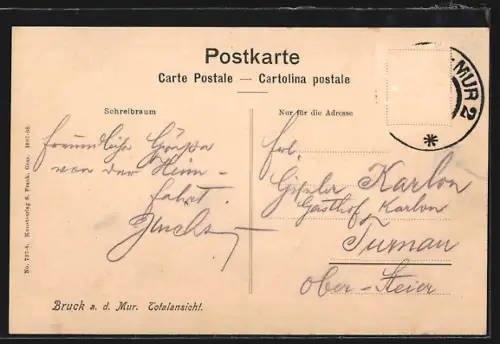 Postkarte
Carte Postale — Cartolina postale
Schreibraum
Nur für die Adresse
MUR 2
freundliche Grüße
von der Heim-
fahrt.
Frl.
Karlon
Gasthof Karlon
Turnau
Ober-Steier
Bruck a. d. Mur. Totalansicht.